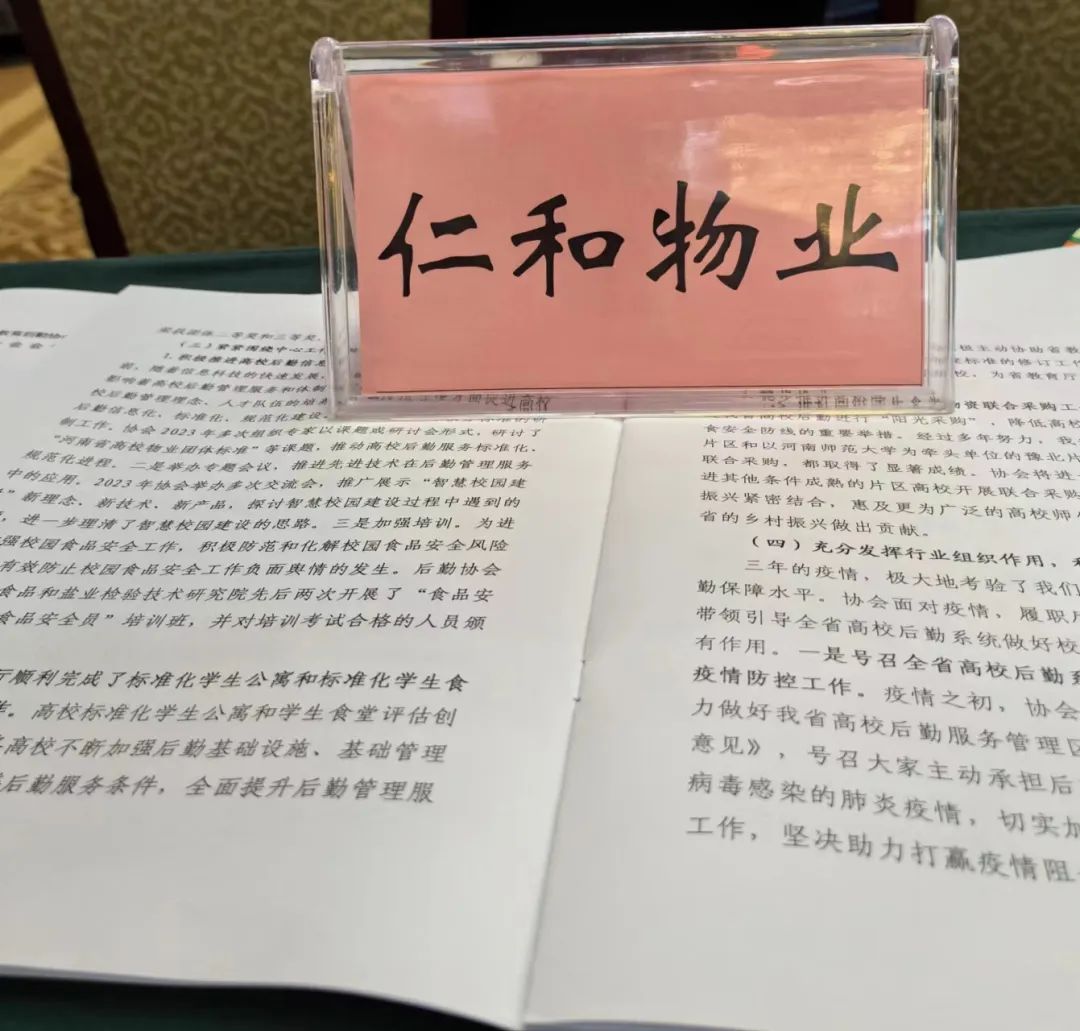 仁和物业
教育后勤协
实获团体二等奖和三等奖
(三)紧紧围绕中心工
1.积极推进高校后勤信息
班,随着信息科技的快速发展,
影响着高校后勤管理服务和体制
校后勤管理理念、人才队伍的培
后勤信息化、标准化、规范化建设。
制工作。协会2023年多次组织专家以课题或研讨会形式,研讨了
“河南省高校物业团体标准”等课题,推动高校后勤服务标准化、
规范化进程。二是举办专题会议,推进先进技术在后勤管理服务
中的应用。2023年协会举办多次交流会,推广展示“智慧校园建
”新理念、新技术、新产品,探讨智慧校园建设过程中遇到的
,进一步理清了智慧校园建设的思路。三是加强培训。为进
强校园食品安全工作,积极防范和化解校园食品安全风险
有效防止校园食品安全工作负面舆情的发生。后勤协会
食品和盐业检验技术研究院先后两次开展了“食品安
食品安全员”培训班,并对培训考试合格的人员颁
厅顺利完成了标准化学生公寓和标准化学生食
作。高校标准化学生公寓和学生食堂评估创
高校不断加强后勤基础设施、基础管理
后勤服务条件,全面提升后勤管理服
极主动协助省教
标准的修订工作
校,为省教育厅
物资联合采购工
我省高校后勤进行“阳光采购”,降低高校
食安全防线的重要举措。经过多年努力,我
片区和以河南师范大学为牵头单位的豫北片
联合采购,都取得了显著成绩。协会将进
进其他条件成熟的片区高校开展联合采购
振兴紧密结合,惠及更为广泛的高校师
省的乡村振兴做出贡献。
(四)充分发挥行业组织作用,
三年的疫情,极大地考验了我们
勤保障水平。协会面对疫情,履职
带领引导全省高校后勤系统做好校
有作用。一是号召全省高校后勤系
疫情防控工作。疫情之初,协会
力做好我省高校后勤服务管理区
意见》,号召大家主动承担后
病毒感染的肺炎疫情,切实加
工作,坚决助力打赢疫情阻